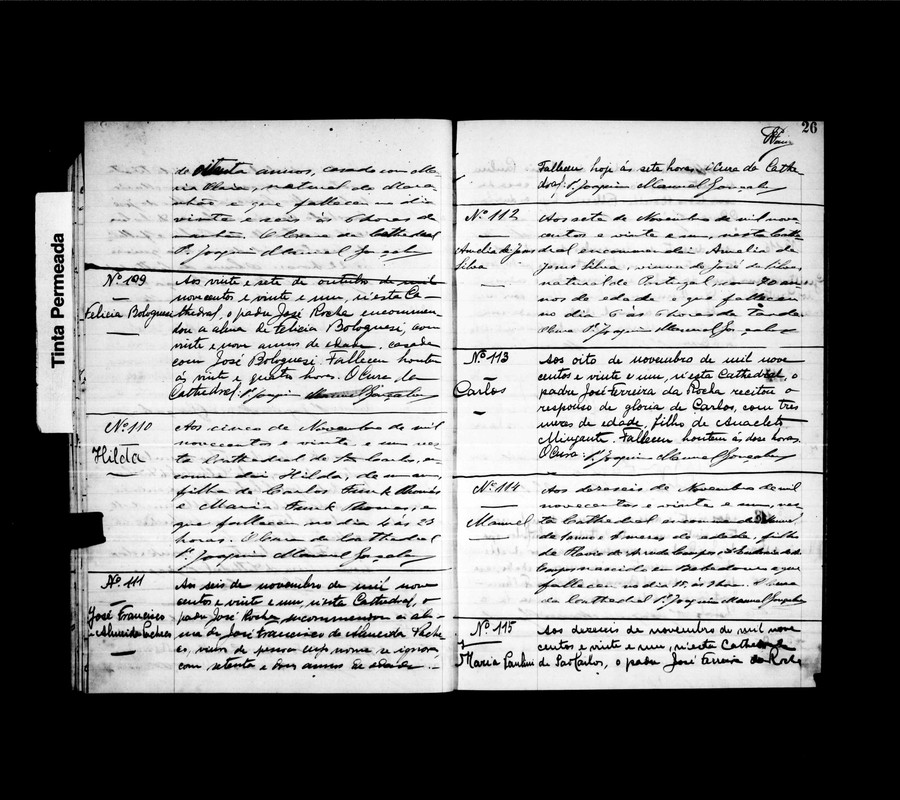 Tinta Permeada
de oitenta annos, casado com Ma-
ria Maia, natural do Mara-
nhão e que falleceu no dia
vinte e seis às 6 horas da
manhã. O Cura da Cathedral
P. Joaquim Manuel Gonçalves
Nº 109
Felicia Bolognesi
Aos vinte e sete de outubro de mil
novecentos e vinte e um, n'esta Ca-
thedral, o padre José Rocha encommen-
dou a alma de Felicia Bolognesi, com
vinte e nove annos de edade, casada
com José Bolognesi. Falleceu hontem
ás vinte e quatro horas. O Cura da
Cathedral P. Joaquim Manuel Gonçalves
Nº 110
Hilda
Aos cinco de Novembro de mil
novecentos e vinte e um nes-
ta Cathedral de S. Carlos, en-
commendei Hilda, de
filha de Carlos Funk Thomás
e Maria Funk Thomás, e
que falleceu no dia 4 ás 23
horas. O Cura da Cathedral
P. Joaquim Manuel Gonçalves
Nº 111
José Francisco
de Almeida Pacheco
Aos seis de novembro de mil nove
centos e vinte e um, n'esta Cathedral, o
padre José Rocha encommendou a al-
ma de José Francisco de Almeida Pache-
co, viuvo de pessoa cujo nome se ignora,
com setenta e dois annos de edade.
26
Falleceu hoje ás sete horas. O Cura da Cathe-
dral, P. Joaquim Manuel Gonçalves
Nº 112
Amelia de Jesus
Silva
Aos sete de Novembro de mil nove-
centos e vinte e um, nesta Cathe-
dral encommendei Amelia de
Jesus Silva, viuva de José da Silva,
natural de Portugal, com 70 an-
nos de edade e que falleceu
no dia 6 ás 6 horas da tarde
O Cura P. Joaquim Manuel Gonçalves
Nº 113
Carlos
Aos oito de novembro de mil nove
centos e vinte e um, n'esta Cathedral, o
padre José Ferreira da Rocha recitou o
responso de gloria de Carlos, com tres
mezes de edade, filho de Anacleto
Falleceu hontem ás dose horas.
O Cura: P. Joaquim Manuel Gonçalves
Nº 114
Manuel
Aos dezeseis de Novembro de mil
novecentos e vinte e um, nes-
ta Cathedral
de 1 anno e mezes de edade, filho
de Flavio de Arruda Campos
Campos nascido em Bebedouro e que
falleceu no dia 15, ás horas. O Cura
da Cathedral P. Joaquim Manuel Gonçalves
Nº 115
Maria
Aos dezenove de novembro de mil nove
centos e vinte e um, n'esta Cathedral
de São Carlos, o padre José Ferreira da Rocha